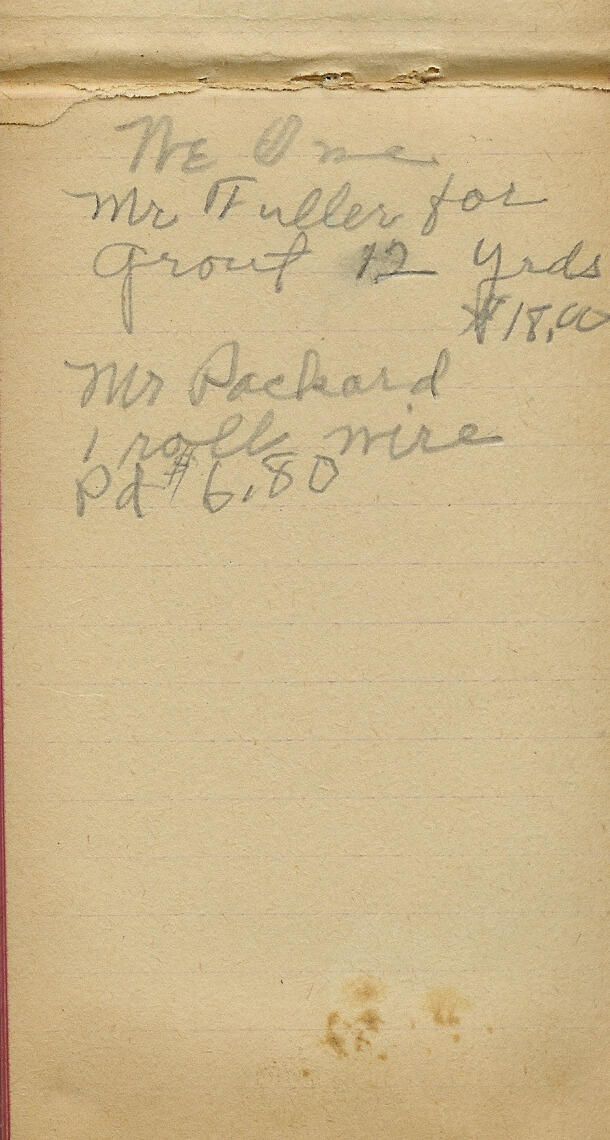 We Owe
Mr Fuller for
Grout 12 yrds
$18.00
Mr Packard
1 roll wire
Pd $6.80